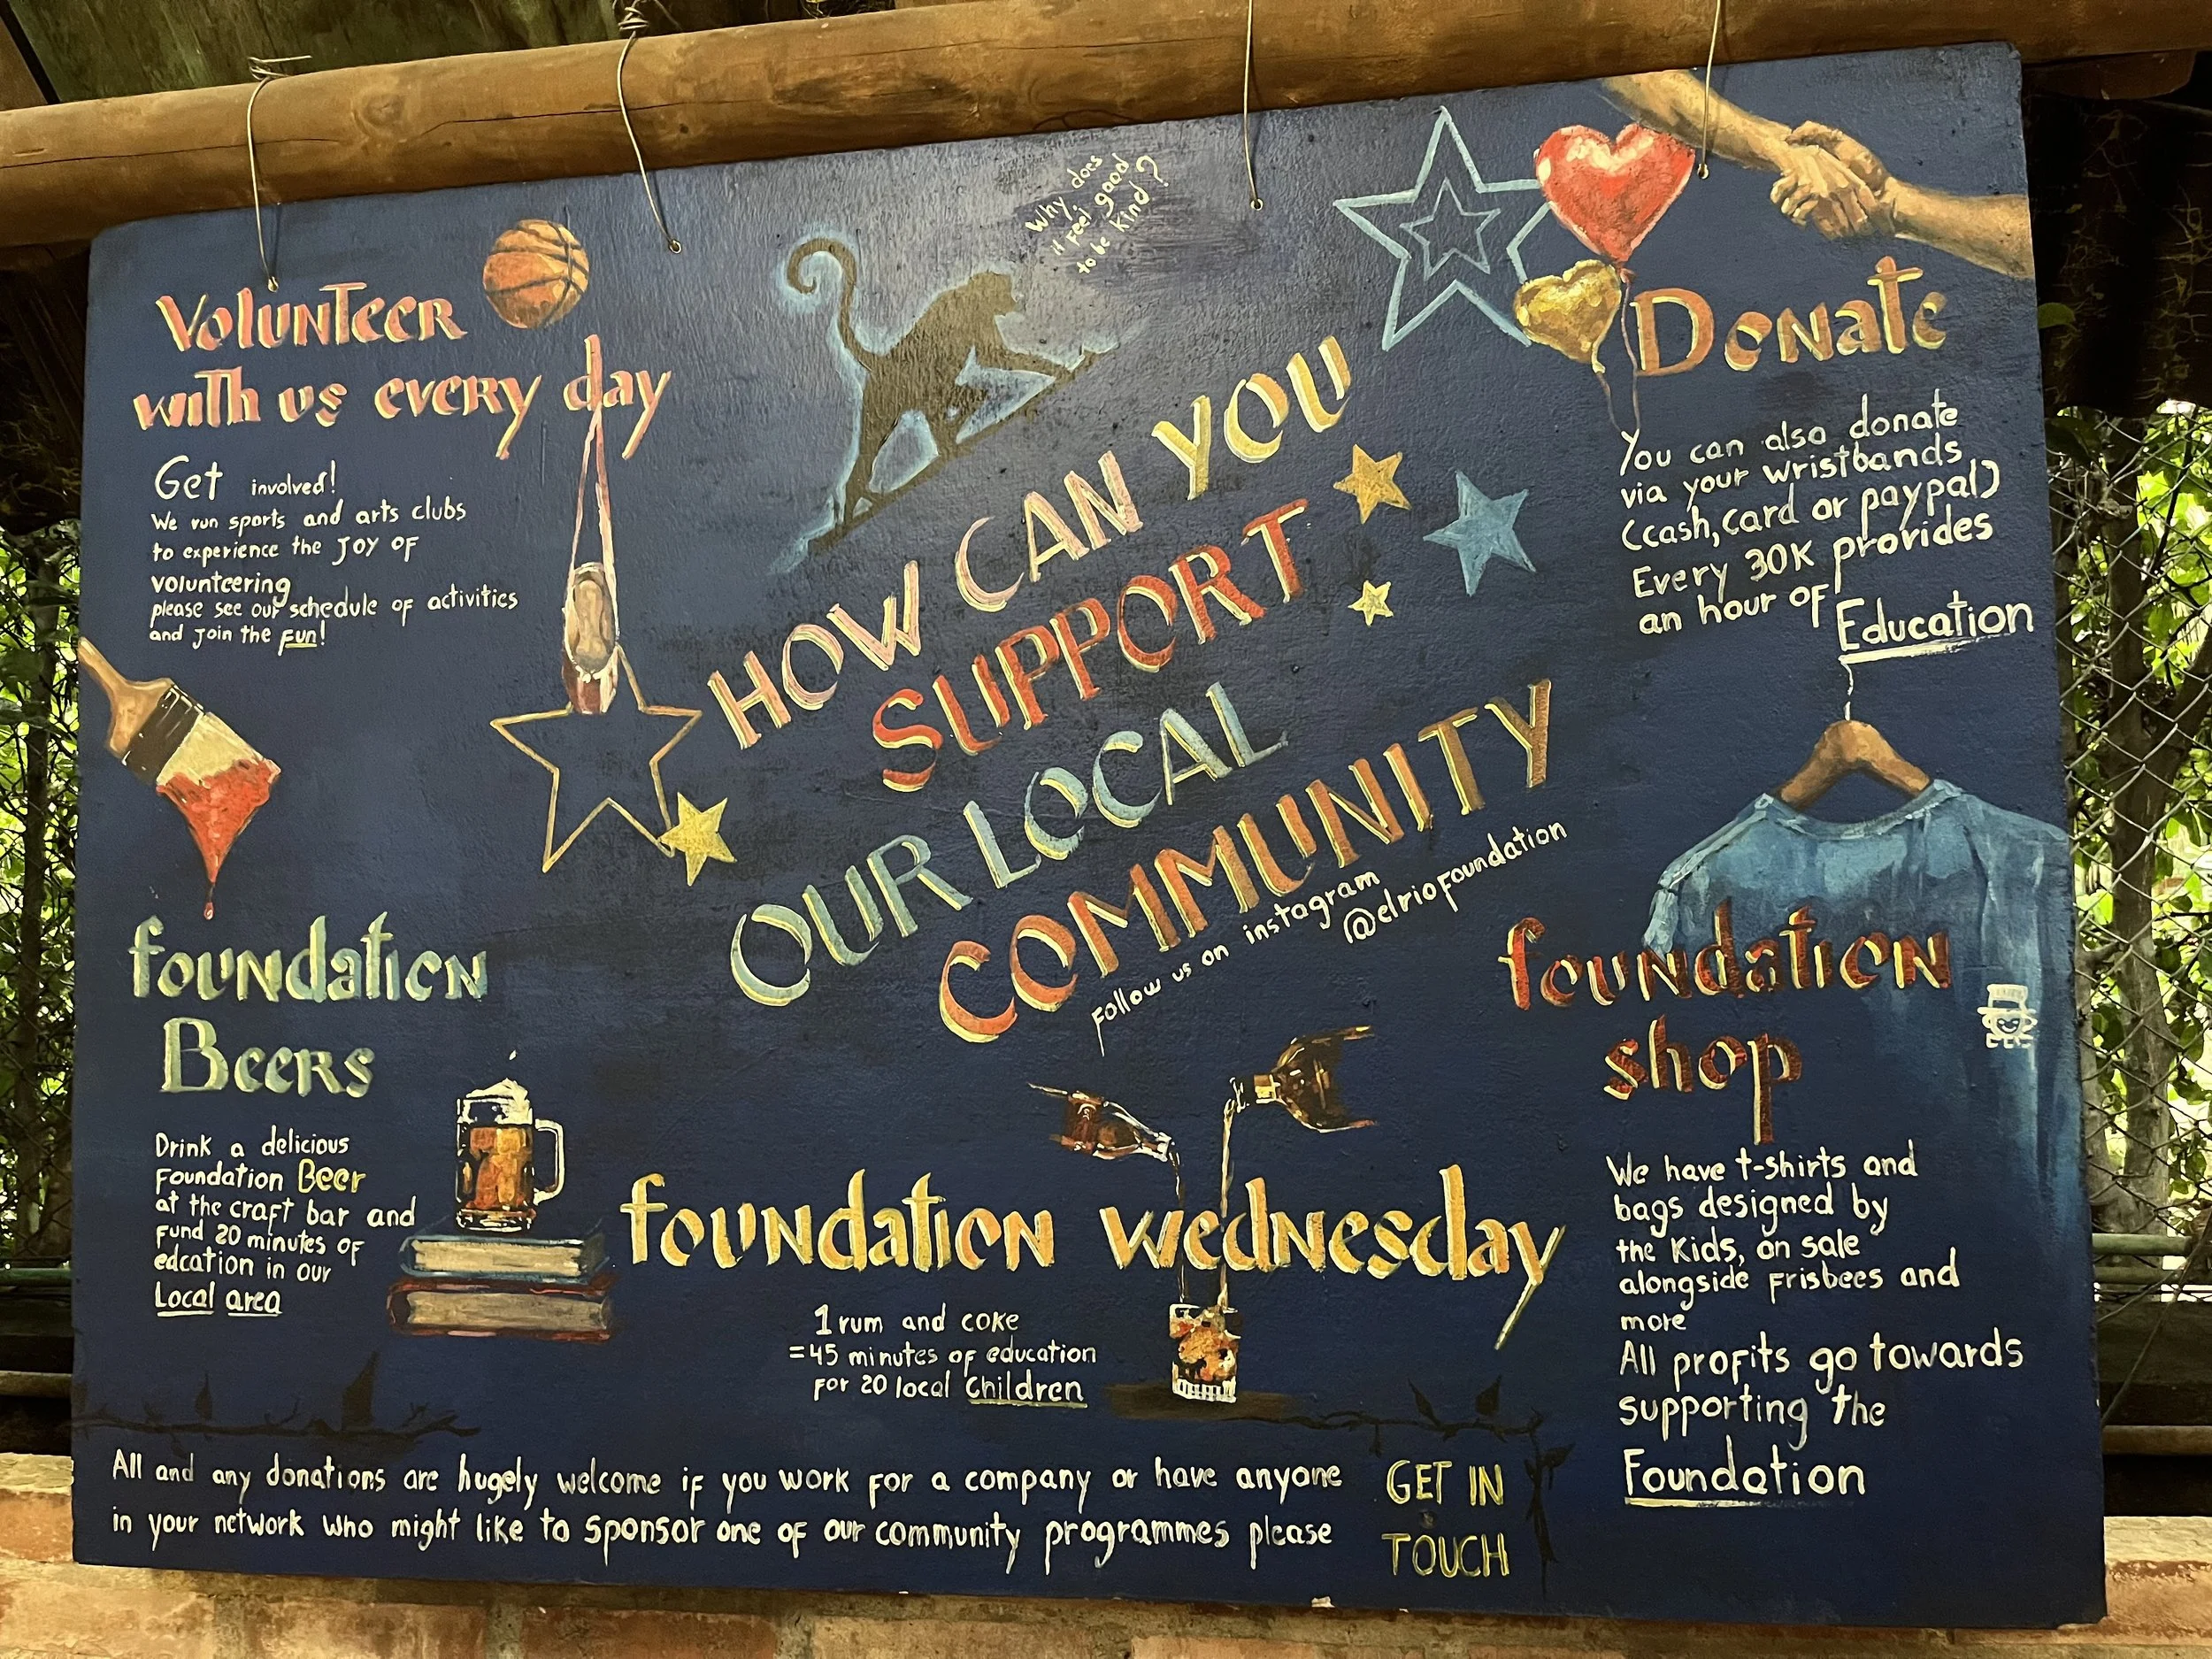 Why does
it feel good
to be kind?
VOLUNTEER
with us every day
Get involved!
We run sports and arts clubs
to experience the JOY OF
volunteering
please see our schedule of activities
and join the fun!
HOW CAN YOU
SUPPORT
OUR LOCAL
COMMUNITY
Follow us on instagram
@elriofoundation
Donate
You can also donate
via your wristbands
(cash, card or paypal)
Every 30K provides
an hour of
Education
foundation
Beers
Drink a delicious
Foundation Beer
at the craft bar and
Fund 20 minutes of
edcation in our
Local area
foundation wednesday
1 rum and coke
=45 minutes of education
for 20 local Children
foundation
shop
We have t-shirts and
bags designed by
the Kids, on sale
alongside Frisbees and
more
All profits go towards
supporting the
Foundation
All and any donations are hugely welcome if you work for a company or have anyone
in your network who might like to sponsor one of our community programmes please
GET IN
TOUCH